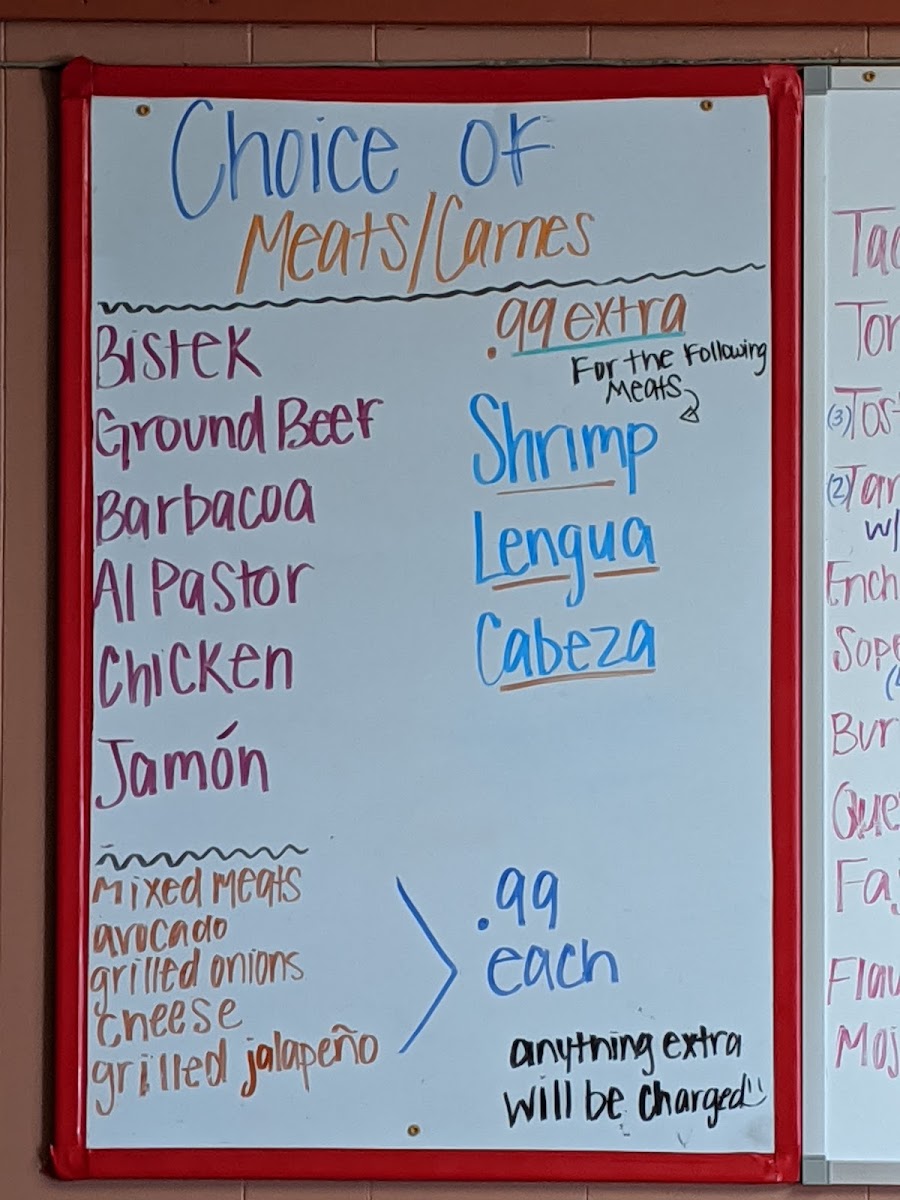 Choice of
Meats/Carnes
Bistek
Ground Beef
Barbacoa
Al Pastor
Chicken
Jamón
.99 extra
For the Following
Meats
Shrimp
Lengua
Cabeza
Mixed Meats
avocado
grilled onions
cheese
grilled jalapeño
.99
each
anything extra
will be charged
(3)
(2)
w/